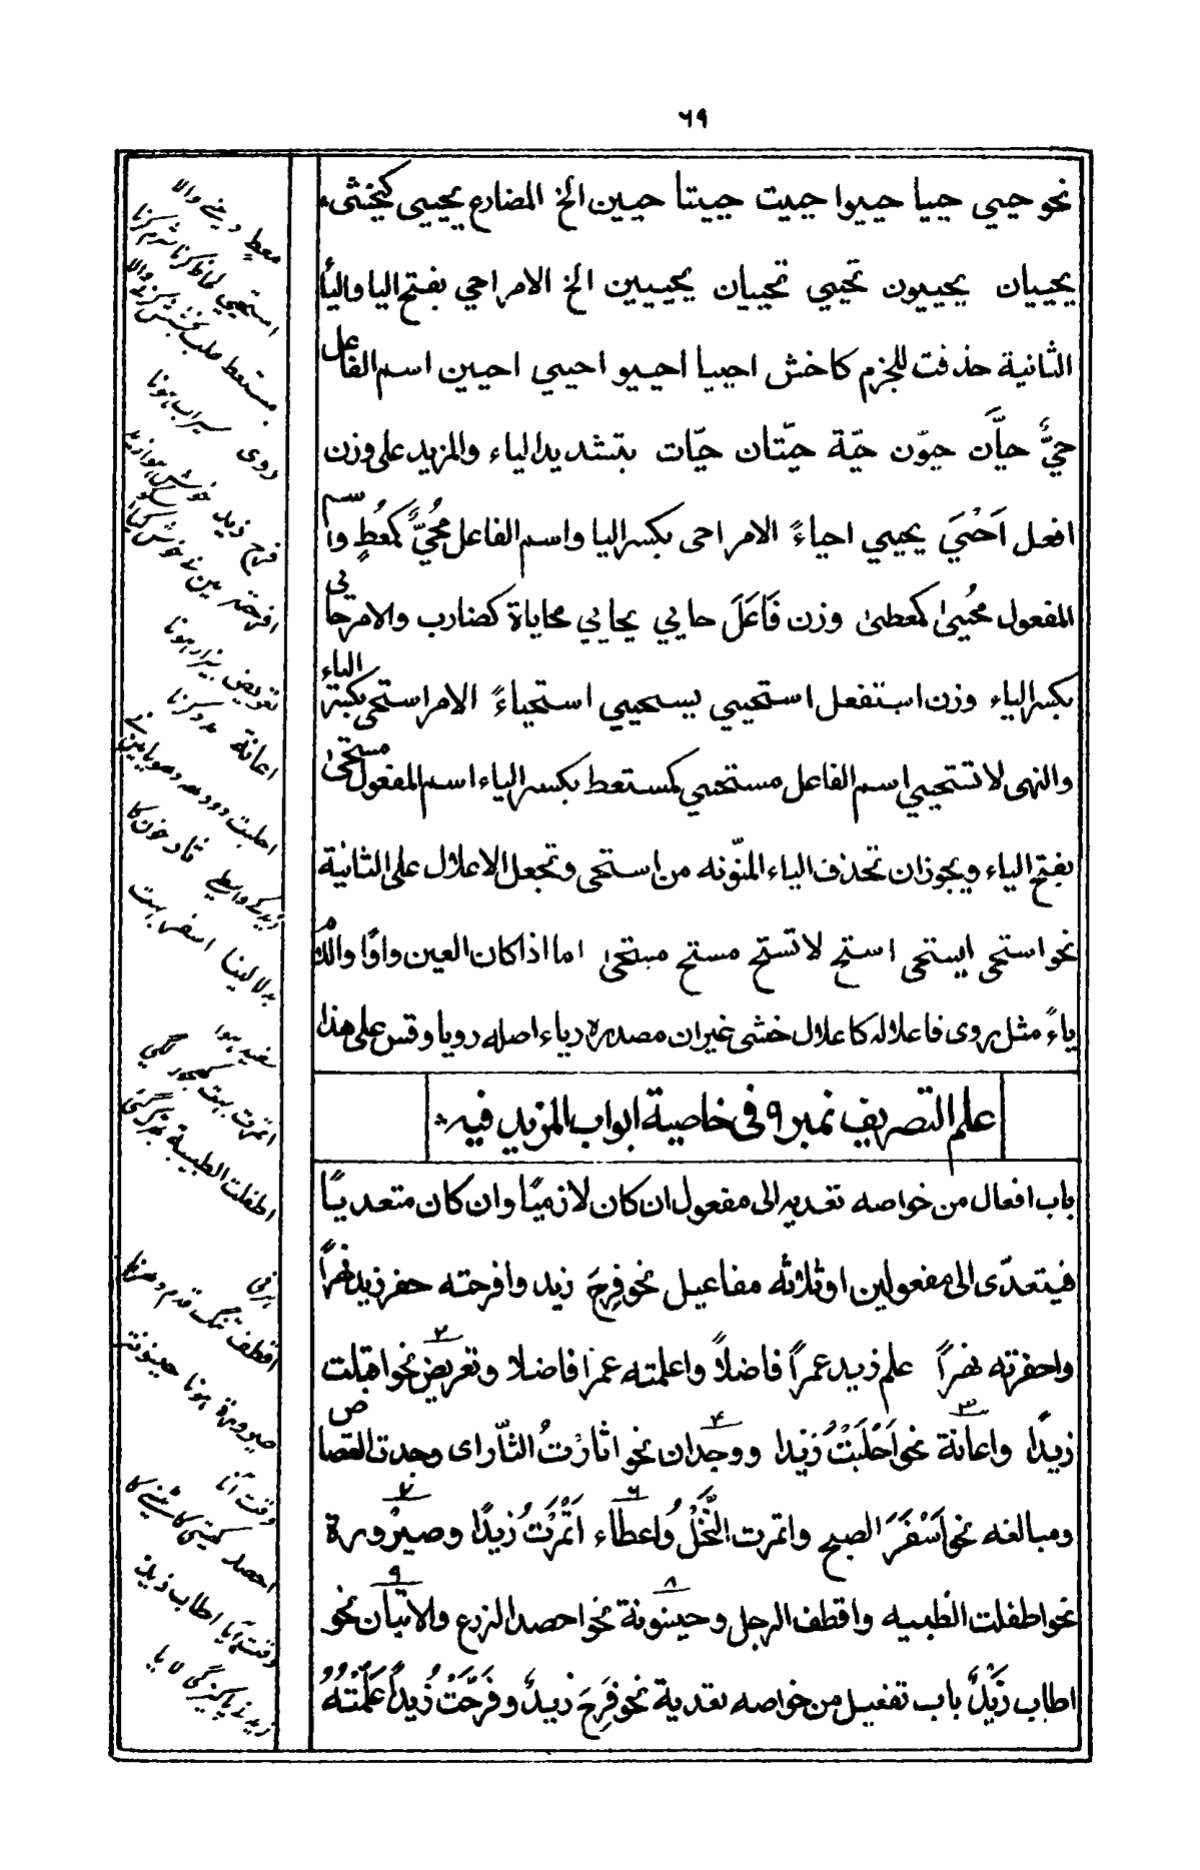 ٦٩
نحو حيي حييا حييوا حييت حييتا حيين الخ المضارع يحيي كيخشى
يحييان يحييون تحيي تحييان يحييين الخ الامر احي بفتح اليا واليأ
الثانية حذفت للجزم كاخش احييا احييو احيي احيين اسم الفاعل
حيٌّ حيَّان حيّون حيّة حيّتان حيّات بتشديد الياء والمزيد على وزن
افعل اَحْيَيَ يحيي احياءً الامر احى بكسر اليا واسم الفاعل مُحيٍّ كمُعُطٍ واسم
المفعول مُحْيىٰ كمعطىٰ وزن فَاعَلَ حايي يحايي محاياة كضارب والامر حايي
بكسر الياء وزن استفعل استحيي يستحيي استحياءً الامر استحى بكسرة الياء
والنهى لا تستحيي اسم الفاعل مستحيي كمستعط بكسر الياء اسم المفعول مستحىٰ
بفتح الياء ويجوز ان تحذف الياء المنّونه من استحى وتجعل الاعلال على الثانية
نحو استحى يستحى استح لا تستح مستح مستحىٰ اما اذا كان العين واوًا واللام
ياءً مثل روى فاعلاله كاعلال خشى غير ان مصدره رياء اصله رويا وقس على هذا
علم التصريف نمبر ٩ فى خاصية ابواب المزيد فيه
باب افعال من خواصه تعديه الى مفعول ان كان لازميًا وان كان متعديًا
فيتعدّى الى مفعولين او ثلاثه مفاعيل نحو فِرحَ زيد وافرحته حفر زيد نهراً
واحفرته نهراً علم زيد عمراً فاضلاً واعلمته عمرا فاضلا وتعريض نحو اقبلت
زيدًا واعانة نحو اَحْلَبْتُ زَيْدا ووجدان نحو اثارْتُ الثّار اى وجدت القصاص
ومبالغه نحو اَسْفَرَ الصبح واتمرت النَّخْلُ واعطاء اَتْمَرْتُ زيدًا وصيْرُورة
نحو اطفلت الظبيه واقطف الرجل وحينونة نحو احصد الزرع والاتيان نحو
اطاب زَيْدٌ باب تفعيل من خواصه تعدية نحو فَرِحَ زيدٌ وفَرَّحْتُ زُيداً عَلَّمْتُهُ
معطٍ دينے والا
استحيي لحاظ كرنا شرم كرنا
مستعط طلب بخشش كرنے والا
روى سيراب ہونا
فرح زيد خوش ہوا زيد
افرحته ميں نے خوش كيا
تعريض بيزار ہونا
اعانة مدد كرنا
احلبت دودھ دھويا ميں نے
زيد كے واسطے ثار خون كا
بدلا لينا اسفر بہت
سفيد ہوا
اتمرت بہت كھجور لگى
اطفلت الظبية
ہرنى
اقطف تنگ قدم
صيرورة ہونا حينونة
وقت آنا
احصد كھيتى كاٹنے كا
وقت آيا اطاب زيدٌ
زيد نے پاكيزگى لايا